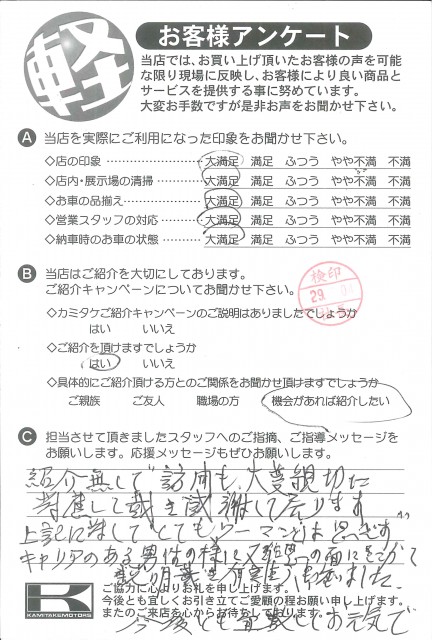 軽
お客様アンケート
当店では、お買い上げ頂いたお客様の声を可能
な限り現場に反映し、お客様により良い商品と
サービスを提供する事に努めています。
大変お手数ですが是非お声をお聞かせ下さい。
A 当店を実際にご利用になった印象をお聞かせ下さい。
◇店の印象 ………………… 大満足 満足 ふつう やや不満 不満
◇店内・展示場の清掃 ……… 大満足 満足 ふつう やや不満 不満
◇お車の品揃え …………… 大満足 満足 ふつう やや不満 不満
◇営業スタッフの対応 ……… 大満足 満足 ふつう やや不満 不満
◇納車時のお車の状態 ……… 大満足 満足 ふつう やや不満 不満
B 当店はご紹介を大切にしてあります。
ご紹介キャンペーンについてお聞かせ下さい。
検印
29.
◇カミタケご紹介キャンペーンのご説明はありましたでしょうか
はい いいえ
◇ご紹介を頂けますでしょうか
はい いいえ
◇具体的にご紹介頂ける方とのご関係をお聞かせ頂けますでしょうか
ご親族 ご友人 職場の方 機会があれば紹介したい
C 担当させて頂きましたスタッフへのご指摘、ご指導メッセージを
お願いします。応援メッセージもぜひお願いします。
紹介無しで訪問も大変親切に
対應して戴き感謝して居ります
上記に対してとても
キャリアのある男性の様に
の面に
説明戴き
ご協力に心よりお礼を申し上げます。
今後とも宜しくお引き立てご愛顧の程お願い申し上げます。
またのご来店を心からお待ちしております。
K
KAMITAKEMOTORS
今後とも
お元気で